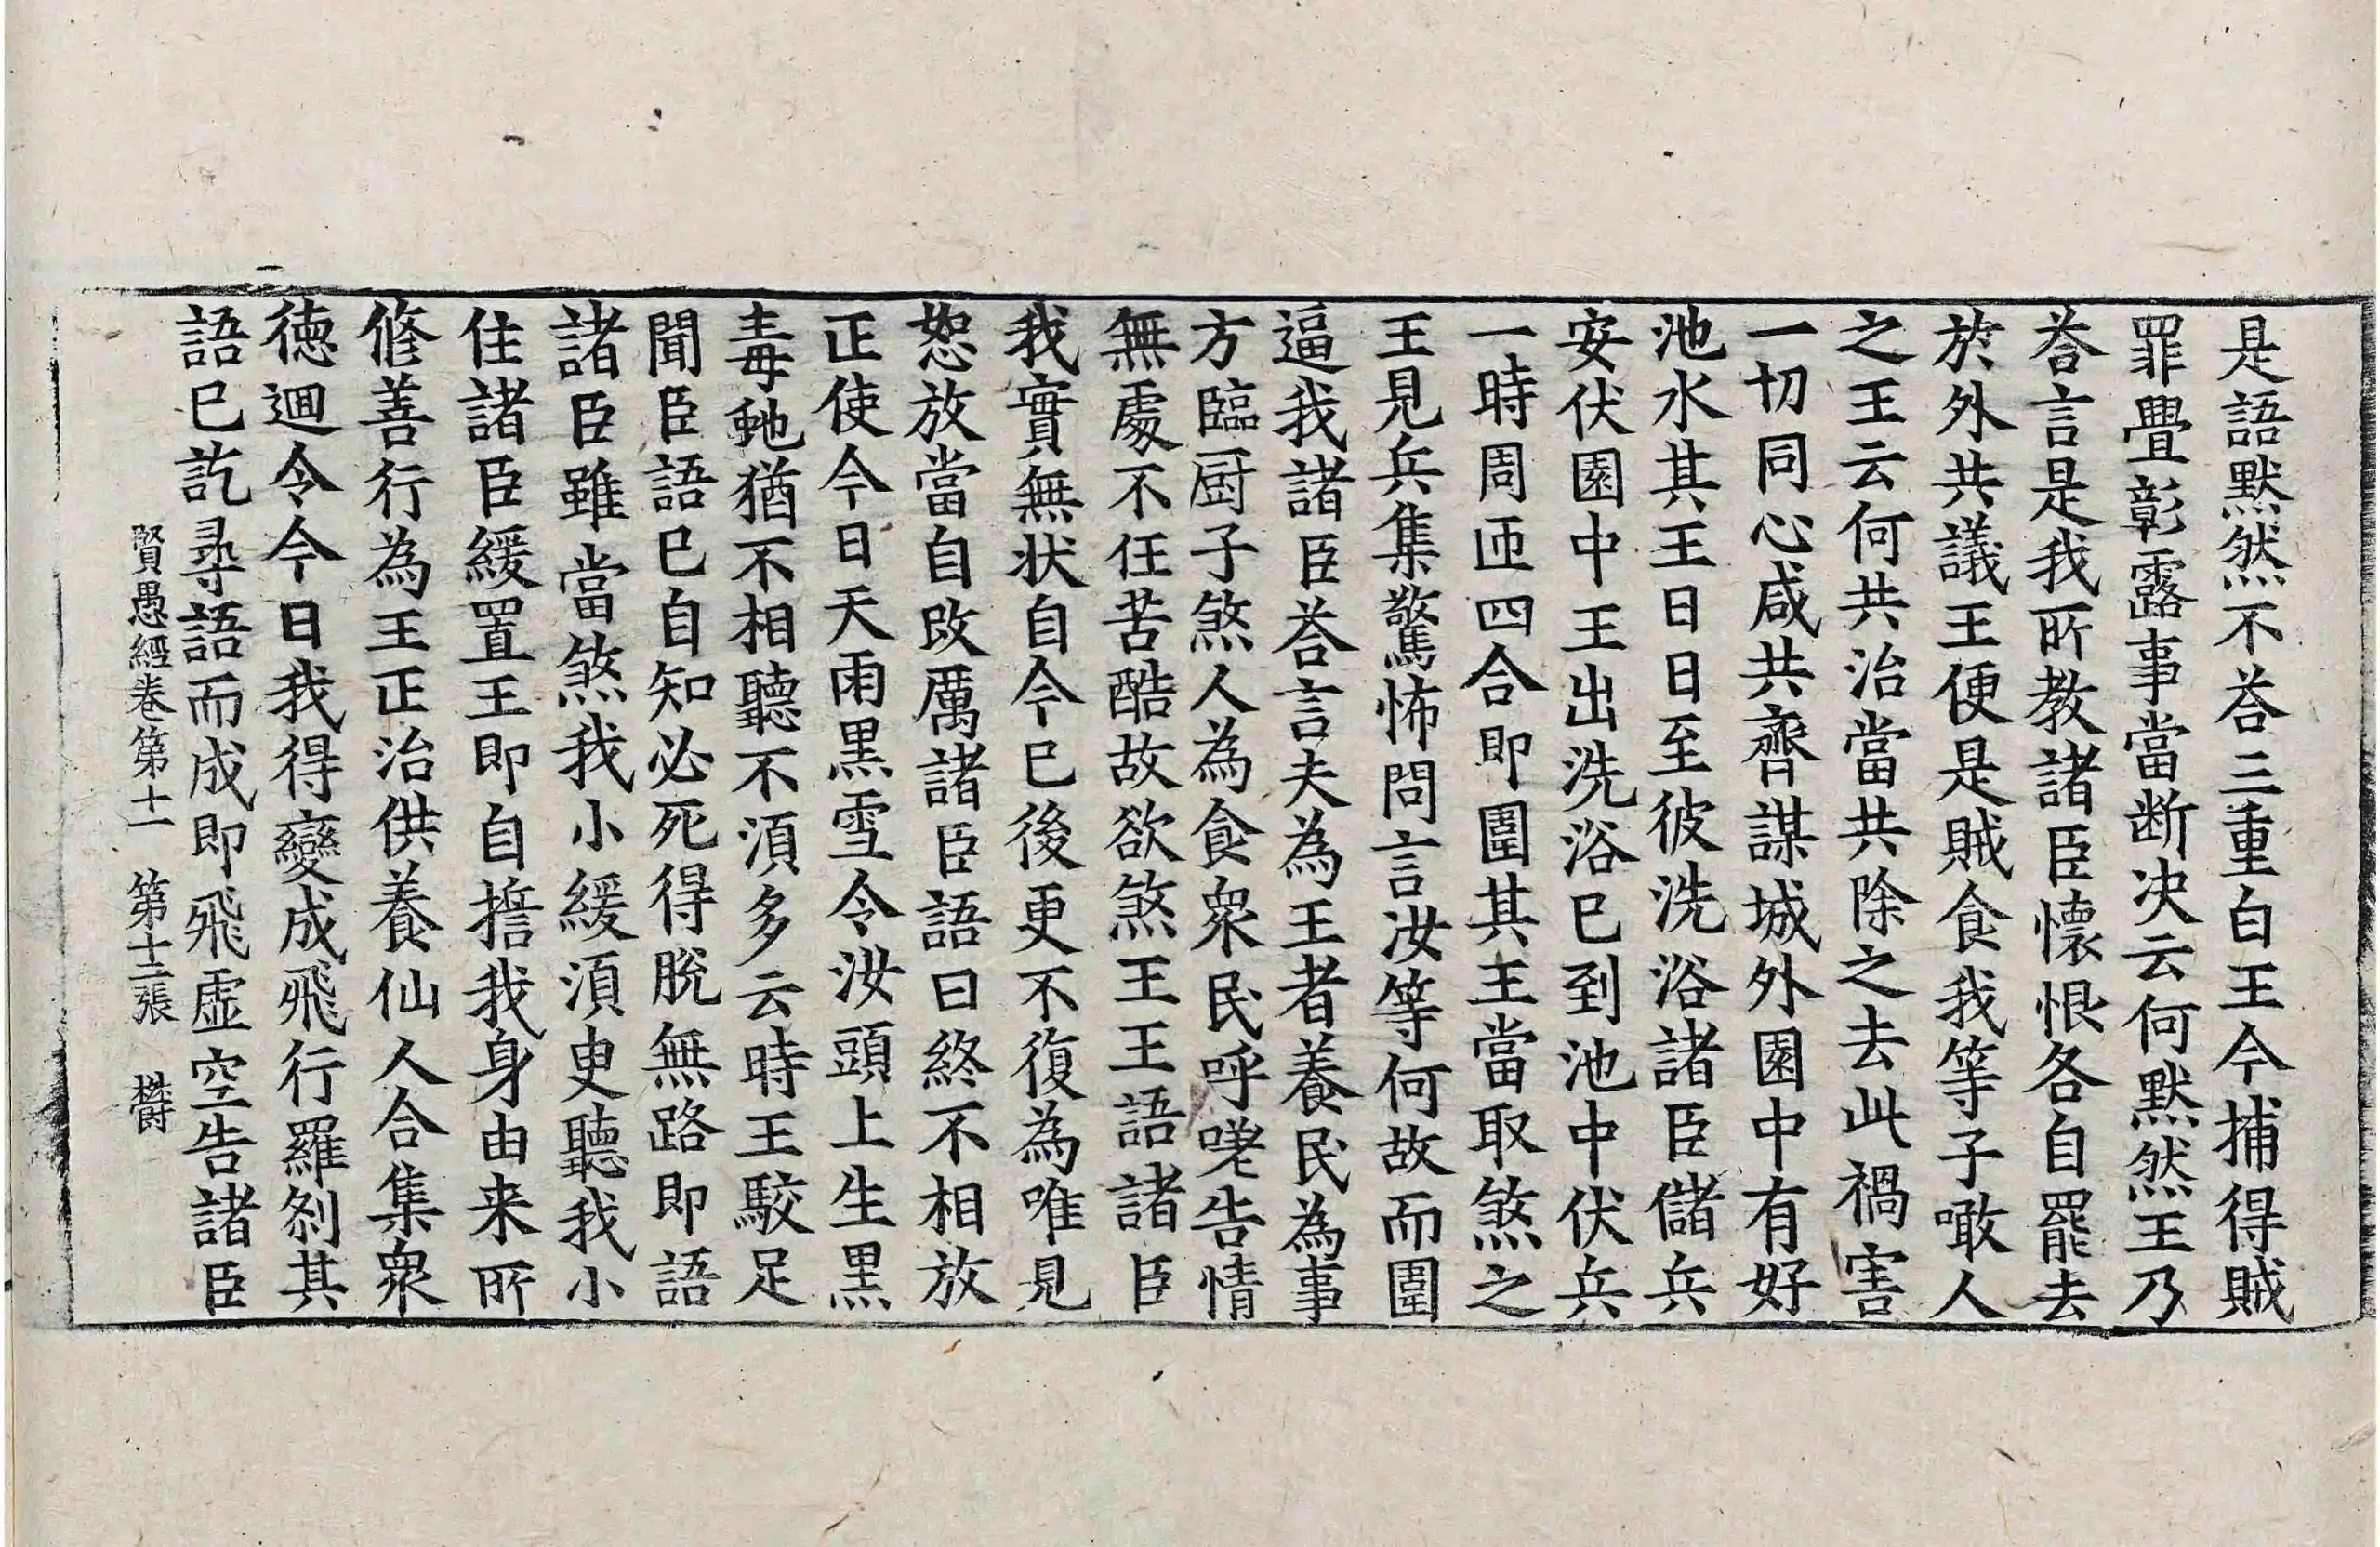 是語默然不荅三重白王今捕得賊
罪舋彰露事當断决云何默然王乃
荅言是我所教諸臣懷恨各自罷去
於外共議王便是賊食我等子噉人
之王云何共治當共除之去此禍害
一切同心咸共齊謀城外園中有好
池水其王日日至彼洗浴諸臣儲兵
安伏園中王出洗浴已到池中伏兵
一時周迊四合即圍其王當取煞之
王見兵集驚怖問言汝等何故而圍
逼我諸臣荅言夫為王者養民為事
方臨厨子煞人為食衆民呼嗟告情
無處不任苦酷故欲煞王王語諸臣
我實無状自今已後更不復為唯見
恕放當自改厲諸臣語曰終不相放
正使今日天雨黑雪令汝頭上生黑
毒虵猶不相聽不湏多云時王駮足
聞臣語已自知必死得脫無路即語
諸臣雖當煞我小緩湏臾聽我小
住諸臣緩置王即自擔我身由来所
脩善行為王正治供養仙人合集衆
徳迴令今日我得變成飛行羅刹其
語已訖尋語而成即飛虛空告諸臣
賢愚經卷第十一　第十二張　欝